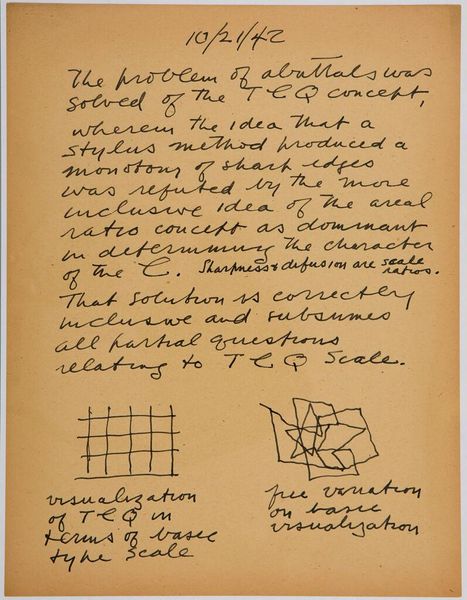 10/21/42
The problem of abuttals was
solved of the T C Q concept,
wherein the idea that a
stylus method produced a
monotony of sharp edges
was refuted by the more
inclusive idea of the areal
ratio concept as dominant
in determining the character
of the C. Sharpness & difusion are scale
ratios.
That solution is correctly
inclusive and subsumes
all partial questions
relating to T C Q Scale.
visualization
of T C Q in
terms of basic
type scale
free variation
on basic
visualization